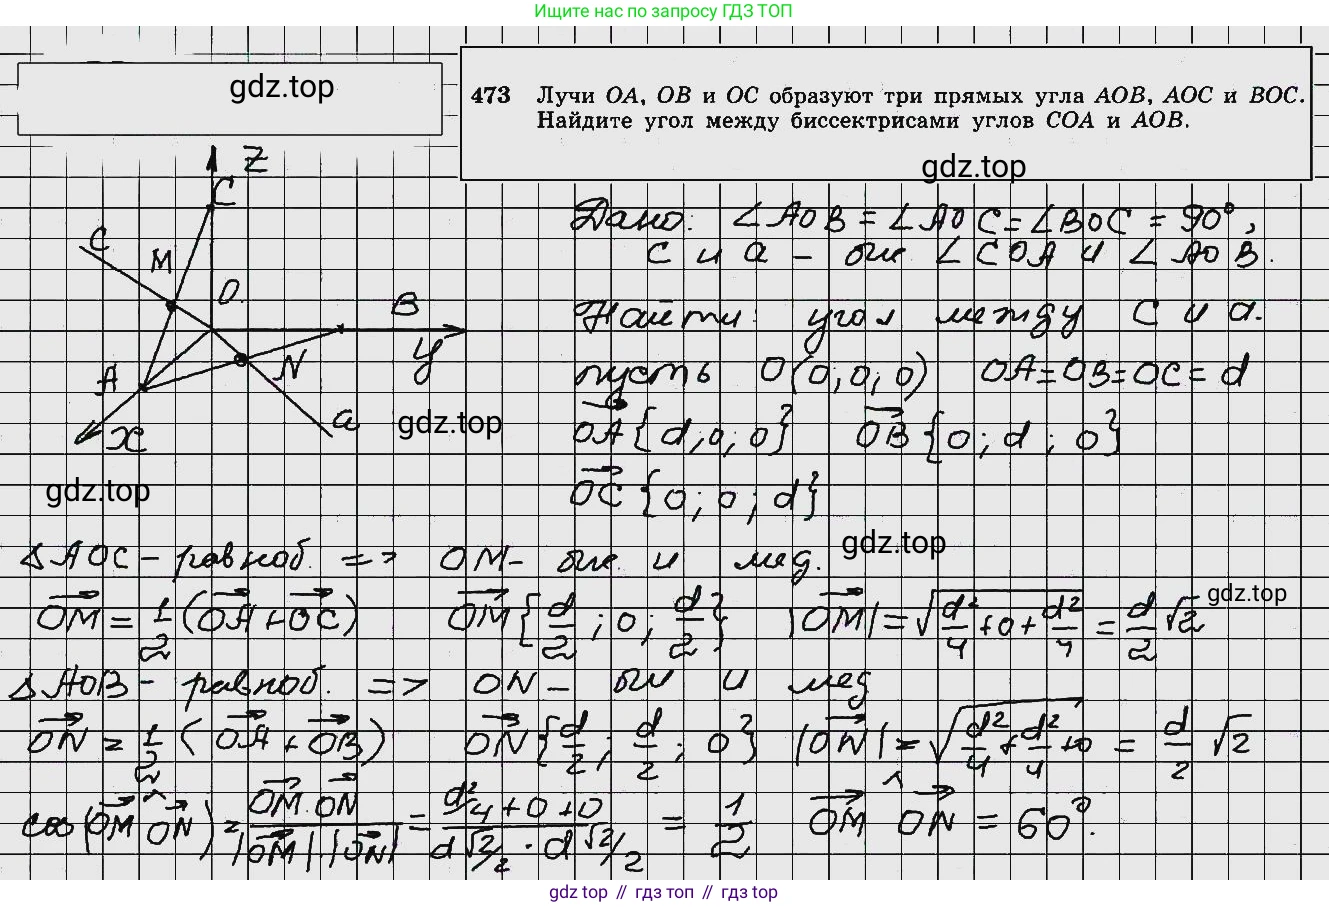 Ищите нас по запросу ГДЗ ТОП
gdz.top
473 Лучи OA, OB и OC образуют три прямых угла AOB, AOC и BOC.
Найдите угол между биссектрисами углов COA и AOB.
gdz.top
Z
C
c
M
O
B
y
N
A
a
x
gdz.top
gdz.top
Дано: ∠AOB = ∠AOC = ∠BOC = 90°,
c и a – бис ∠COA и ∠AOB.
Найти: угол между c и a.
пусть O(0;0;0) OA=OB=OC=d
OA{d;0;0} OB{0;d;0}
OC{0;0;d}
gdz.top
ΔAOC – равноб. => OM – бис. и мед.
OM = 1/2 (OA+OC) OM{d/2;0;d/2} |OM| = √(d²/4+0+d²/4) = d/2 √2
gdz.top
ΔAOB – равноб. => ON – бис и мед
ON = 1/2 (OA+OB) ON{d/2;d/2;0} |ON| = √(d²/4+d²/4+0) = d/2 √2
cos(OM^ON) = OM·ON / |OM|·|ON| = d²/4+0+0 / d√2/2 · d√2/2 = 1/2 OM^ON = 60°.
gdz top // гдз топ // gdz top